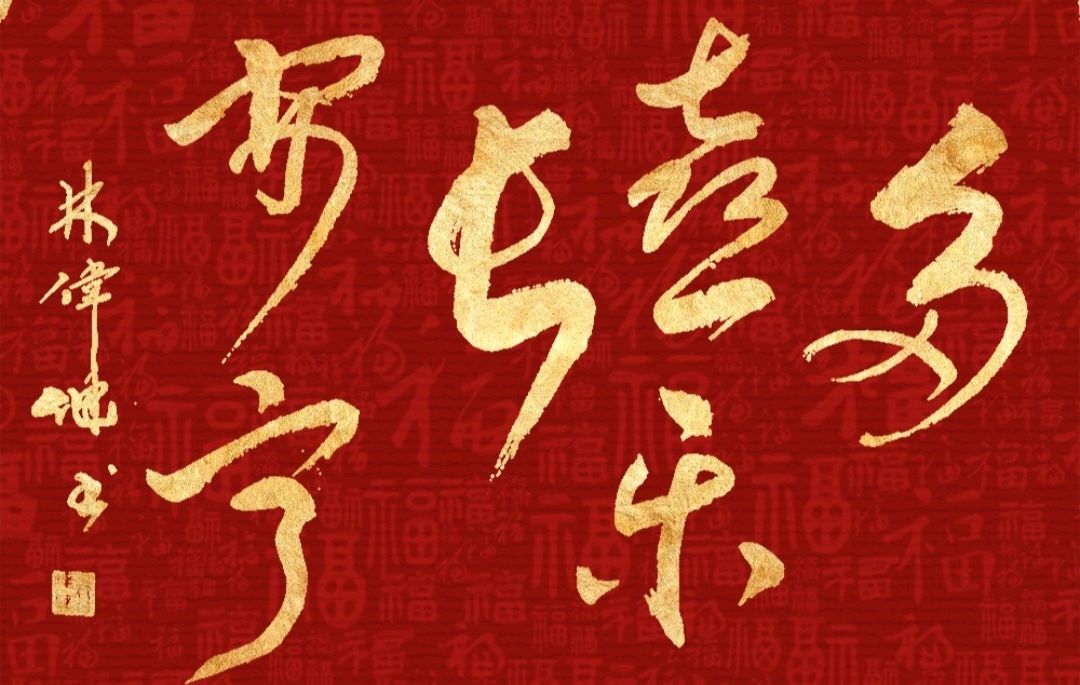 多
喜乐
长
安宁
林偉书